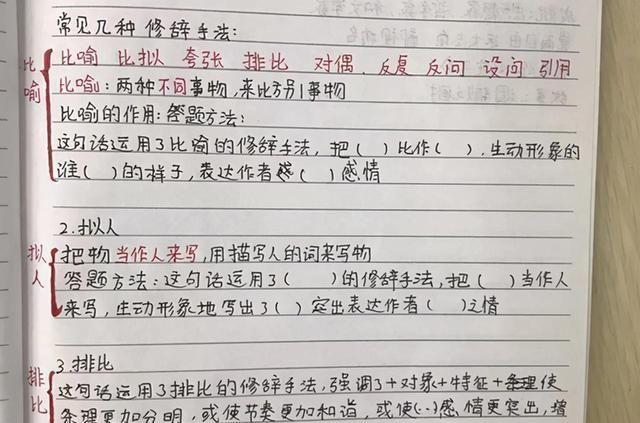 常见几种修辞手法:
比喻 比拟 夸张 排比 对偶、反复 反问 设问 引用
比喻
比喻:两种不同事物,来比方另1事物
比喻的作用:答题方法:
这句话运用了比喻的修辞手法,把( )比作( ),生动形象的
谁( )的样子,表达作者感( )感情
2.拟人
拟人
把物当作人来写,用描写人的词来写物
答题方法:这句话运用了( )的修辞手法,把( )当作人
来写,生动形象地写出了( )突出表达作者( )之情
3.排比
排比
这句话运用了排比的修辞手法,强调了+对象+特征+条理使
条理更加分明,或使节奏更加和谐,或使(··)感情更突出,增